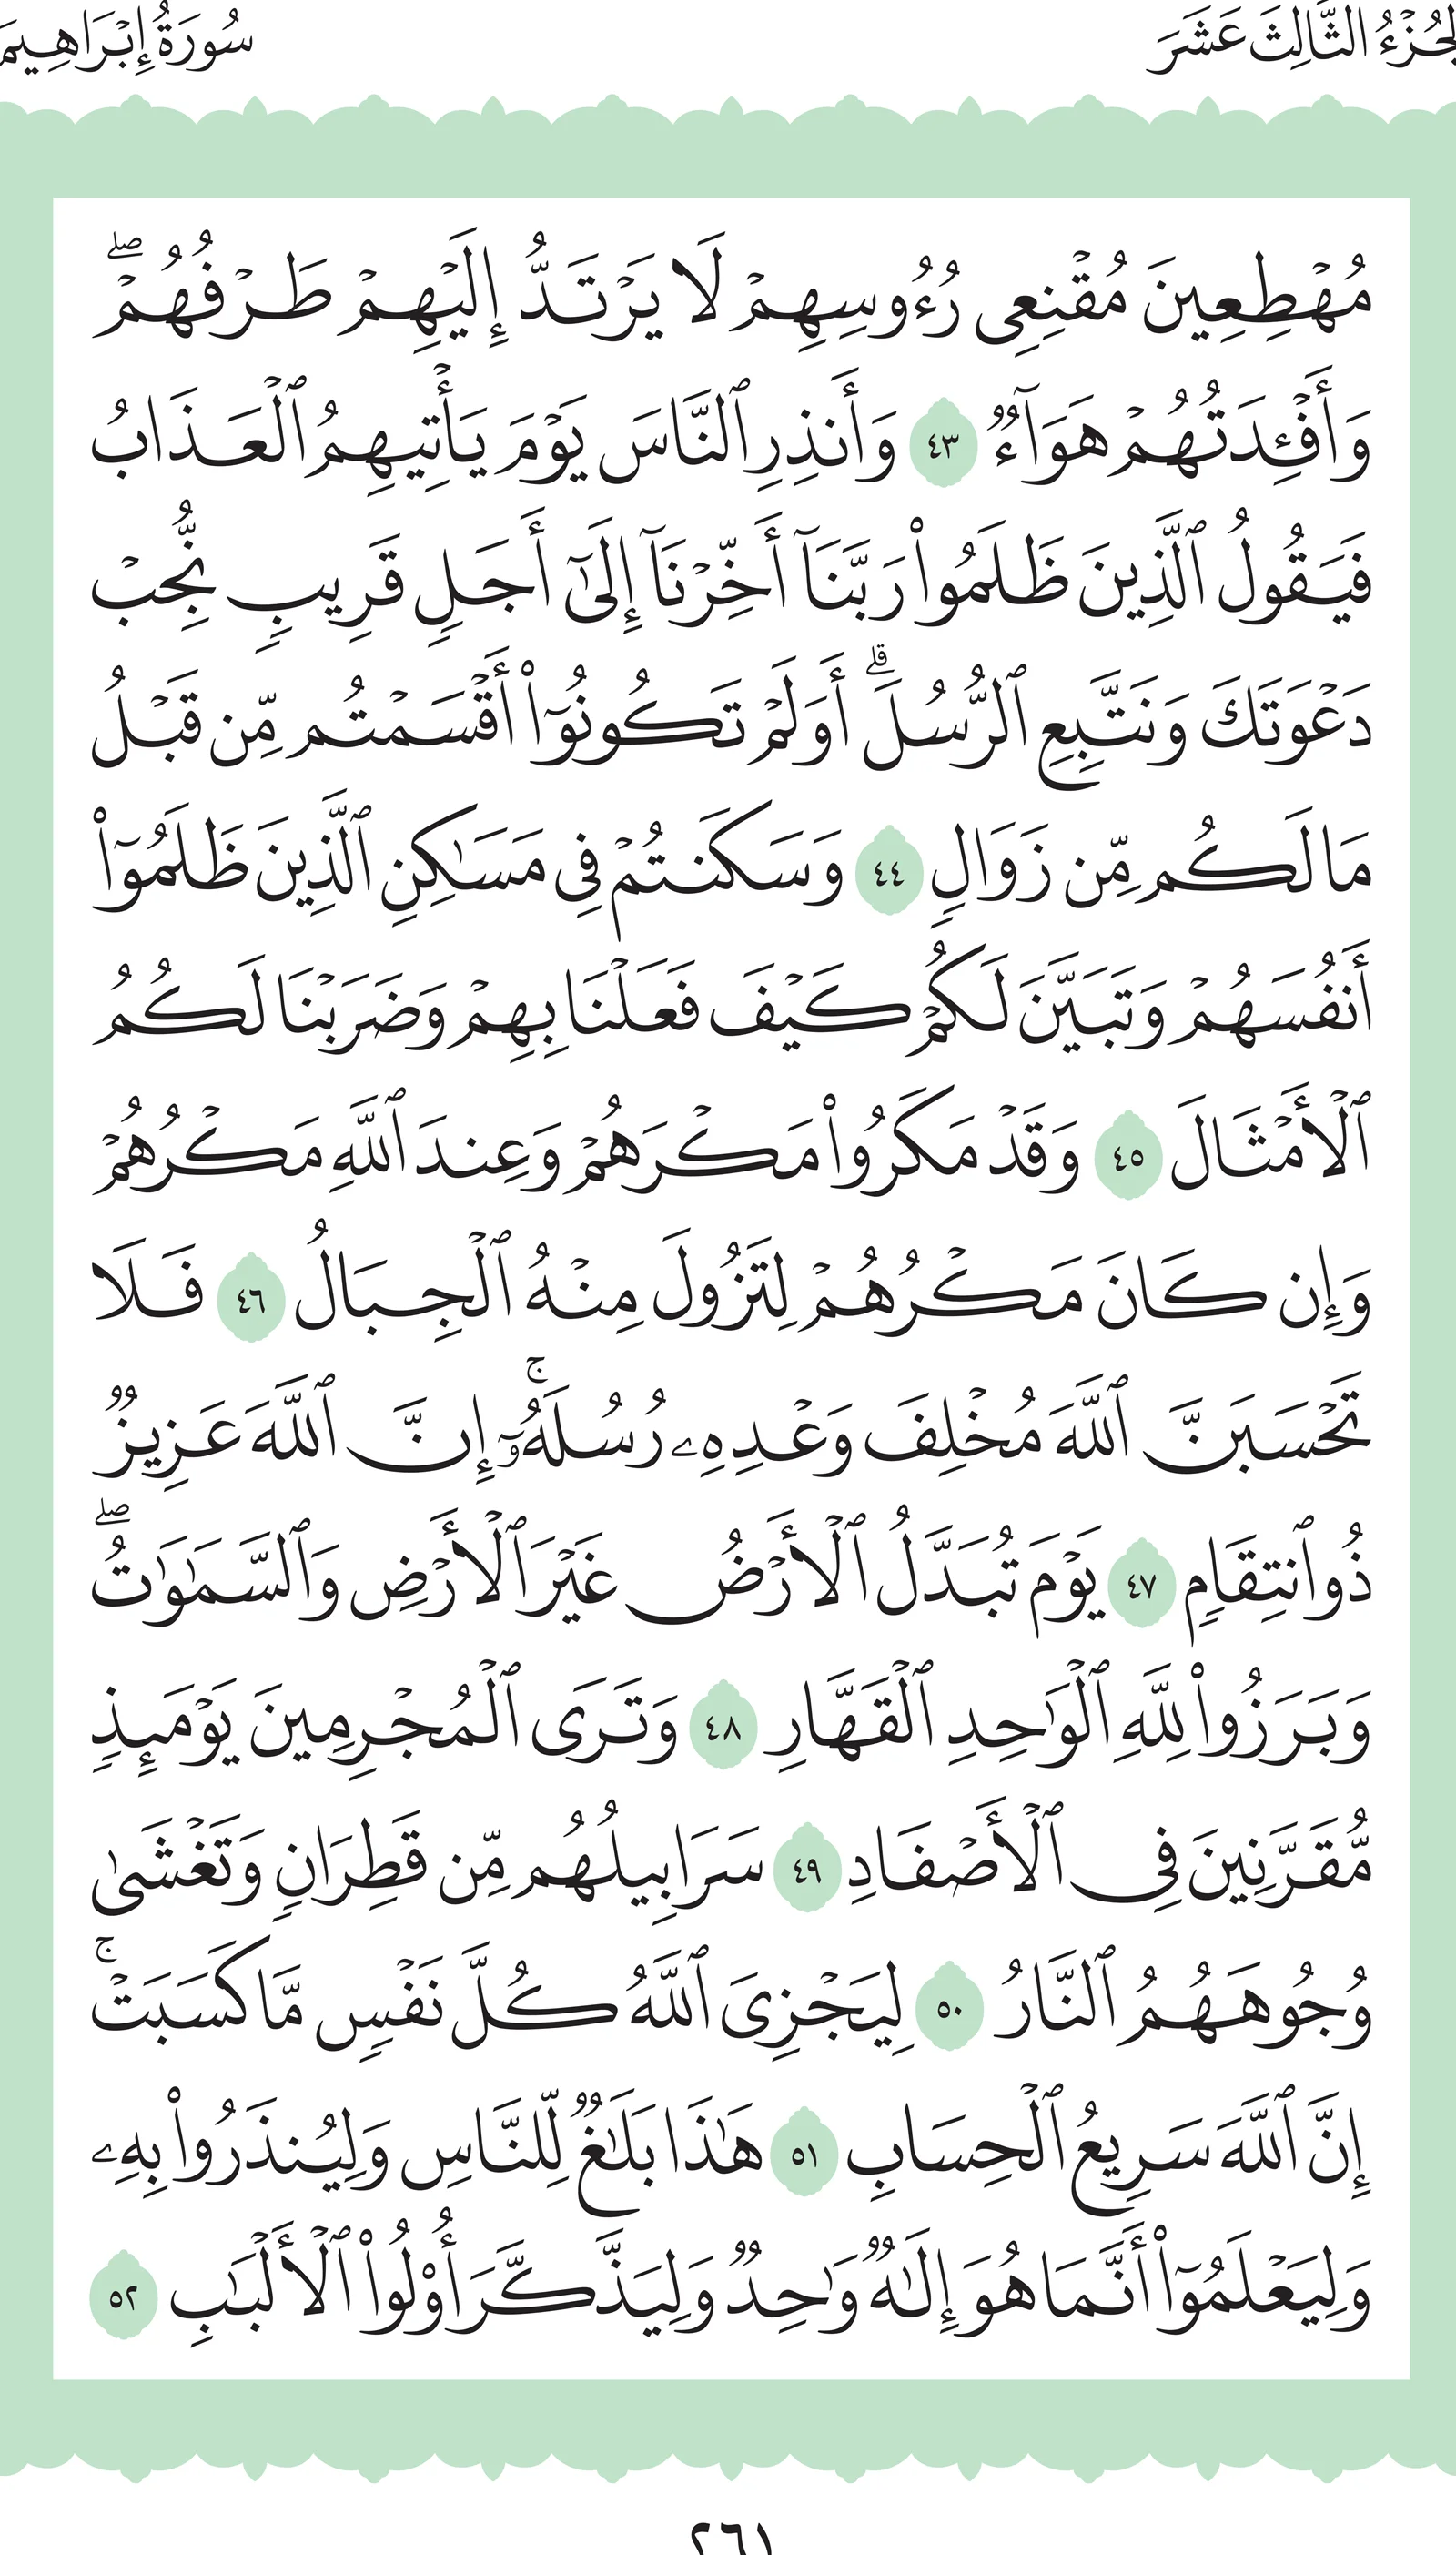 سُورَةُ إِبْرَاهِيمَ
الجُزْءُ الثَّالِثَ عَشَرَ
مُهْطِعِينَ مُقْنِعِى رُءُوسِهِمْ لَا يَرْتَدُّ إِلَيْهِمْ طَرْفُهُمْ ۖ
وَأَفْـِٔدَتُهُمْ هَوَآءٌ ٤٣ وَأَنذِرِ ٱلنَّاسَ يَوْمَ يَأْتِيهِمُ ٱلْعَذَابُ
فَيَقُولُ ٱلَّذِينَ ظَلَمُوا۟ رَبَّنَآ أَخِّرْنَآ إِلَىٰٓ أَجَلٍ قَرِيبٍ نُّجِبْ
دَعْوَتَكَ وَنَتَّبِعِ ٱلرُّسُلَ ۗ أَوَلَمْ تَكُونُوٓا۟ أَقْسَمْتُم مِّن قَبْلُ
مَا لَكُم مِّن زَوَالٍ ٤٤ وَسَكَنتُمْ فِى مَسَـٰكِنِ ٱلَّذِينَ ظَلَمُوٓا۟
أَنفُسَهُمْ وَتَبَيَّنَ لَكُمْ كَيْفَ فَعَلْنَا بِهِمْ وَضَرَبْنَا لَكُمُ
ٱلْأَمْثَالَ ٤٥ وَقَدْ مَكَرُوا۟ مَكْرَهُمْ وَعِندَ ٱللَّهِ مَكْرُهُمْ
وَإِن كَانَ مَكْرُهُمْ لِتَزُولَ مِنْهُ ٱلْجِبَالُ ٤٦ فَلَا
تَحْسَبَنَّ ٱللَّهَ مُخْلِفَ وَعْدِهِۦ رُسُلَهُۥٓ ۚ إِنَّ ٱللَّهَ عَزِيزٌ
ذُو ٱنتِقَامٍ ٤٧ يَوْمَ تُبَدَّلُ ٱلْأَرْضُ غَيْرَ ٱلْأَرْضِ وَٱلسَّمَـٰوَٰتُ ۖ
وَبَرَزُوا۟ لِلَّهِ ٱلْوَٰحِدِ ٱلْقَهَّارِ ٤٨ وَتَرَى ٱلْمُجْرِمِينَ يَوْمَئِذٍ
مُّقَرَّنِينَ فِى ٱلْأَصْفَادِ ٤٩ سَرَابِيلُهُم مِّن قَطِرَانٍ وَتَغْشَىٰ
وُجُوهَهُمُ ٱلنَّارُ ٥٠ لِيَجْزِىَ ٱللَّهُ كُلَّ نَفْسٍ مَّا كَسَبَتْ ۚ
إِنَّ ٱللَّهَ سَرِيعُ ٱلْحِسَابِ ٥١ هَـٰذَا بَلَـٰغٌ لِّلنَّاسِ وَلِيُنذَرُوا۟ بِهِۦ
وَلِيَعْلَمُوٓا۟ أَنَّمَا هُوَ إِلَـٰهٌ وَٰحِدٌ وَلِيَذَّكَّرَ أُو۟لُوا۟ ٱلْأَلْبَـٰبِ ٥٢
٢٦١